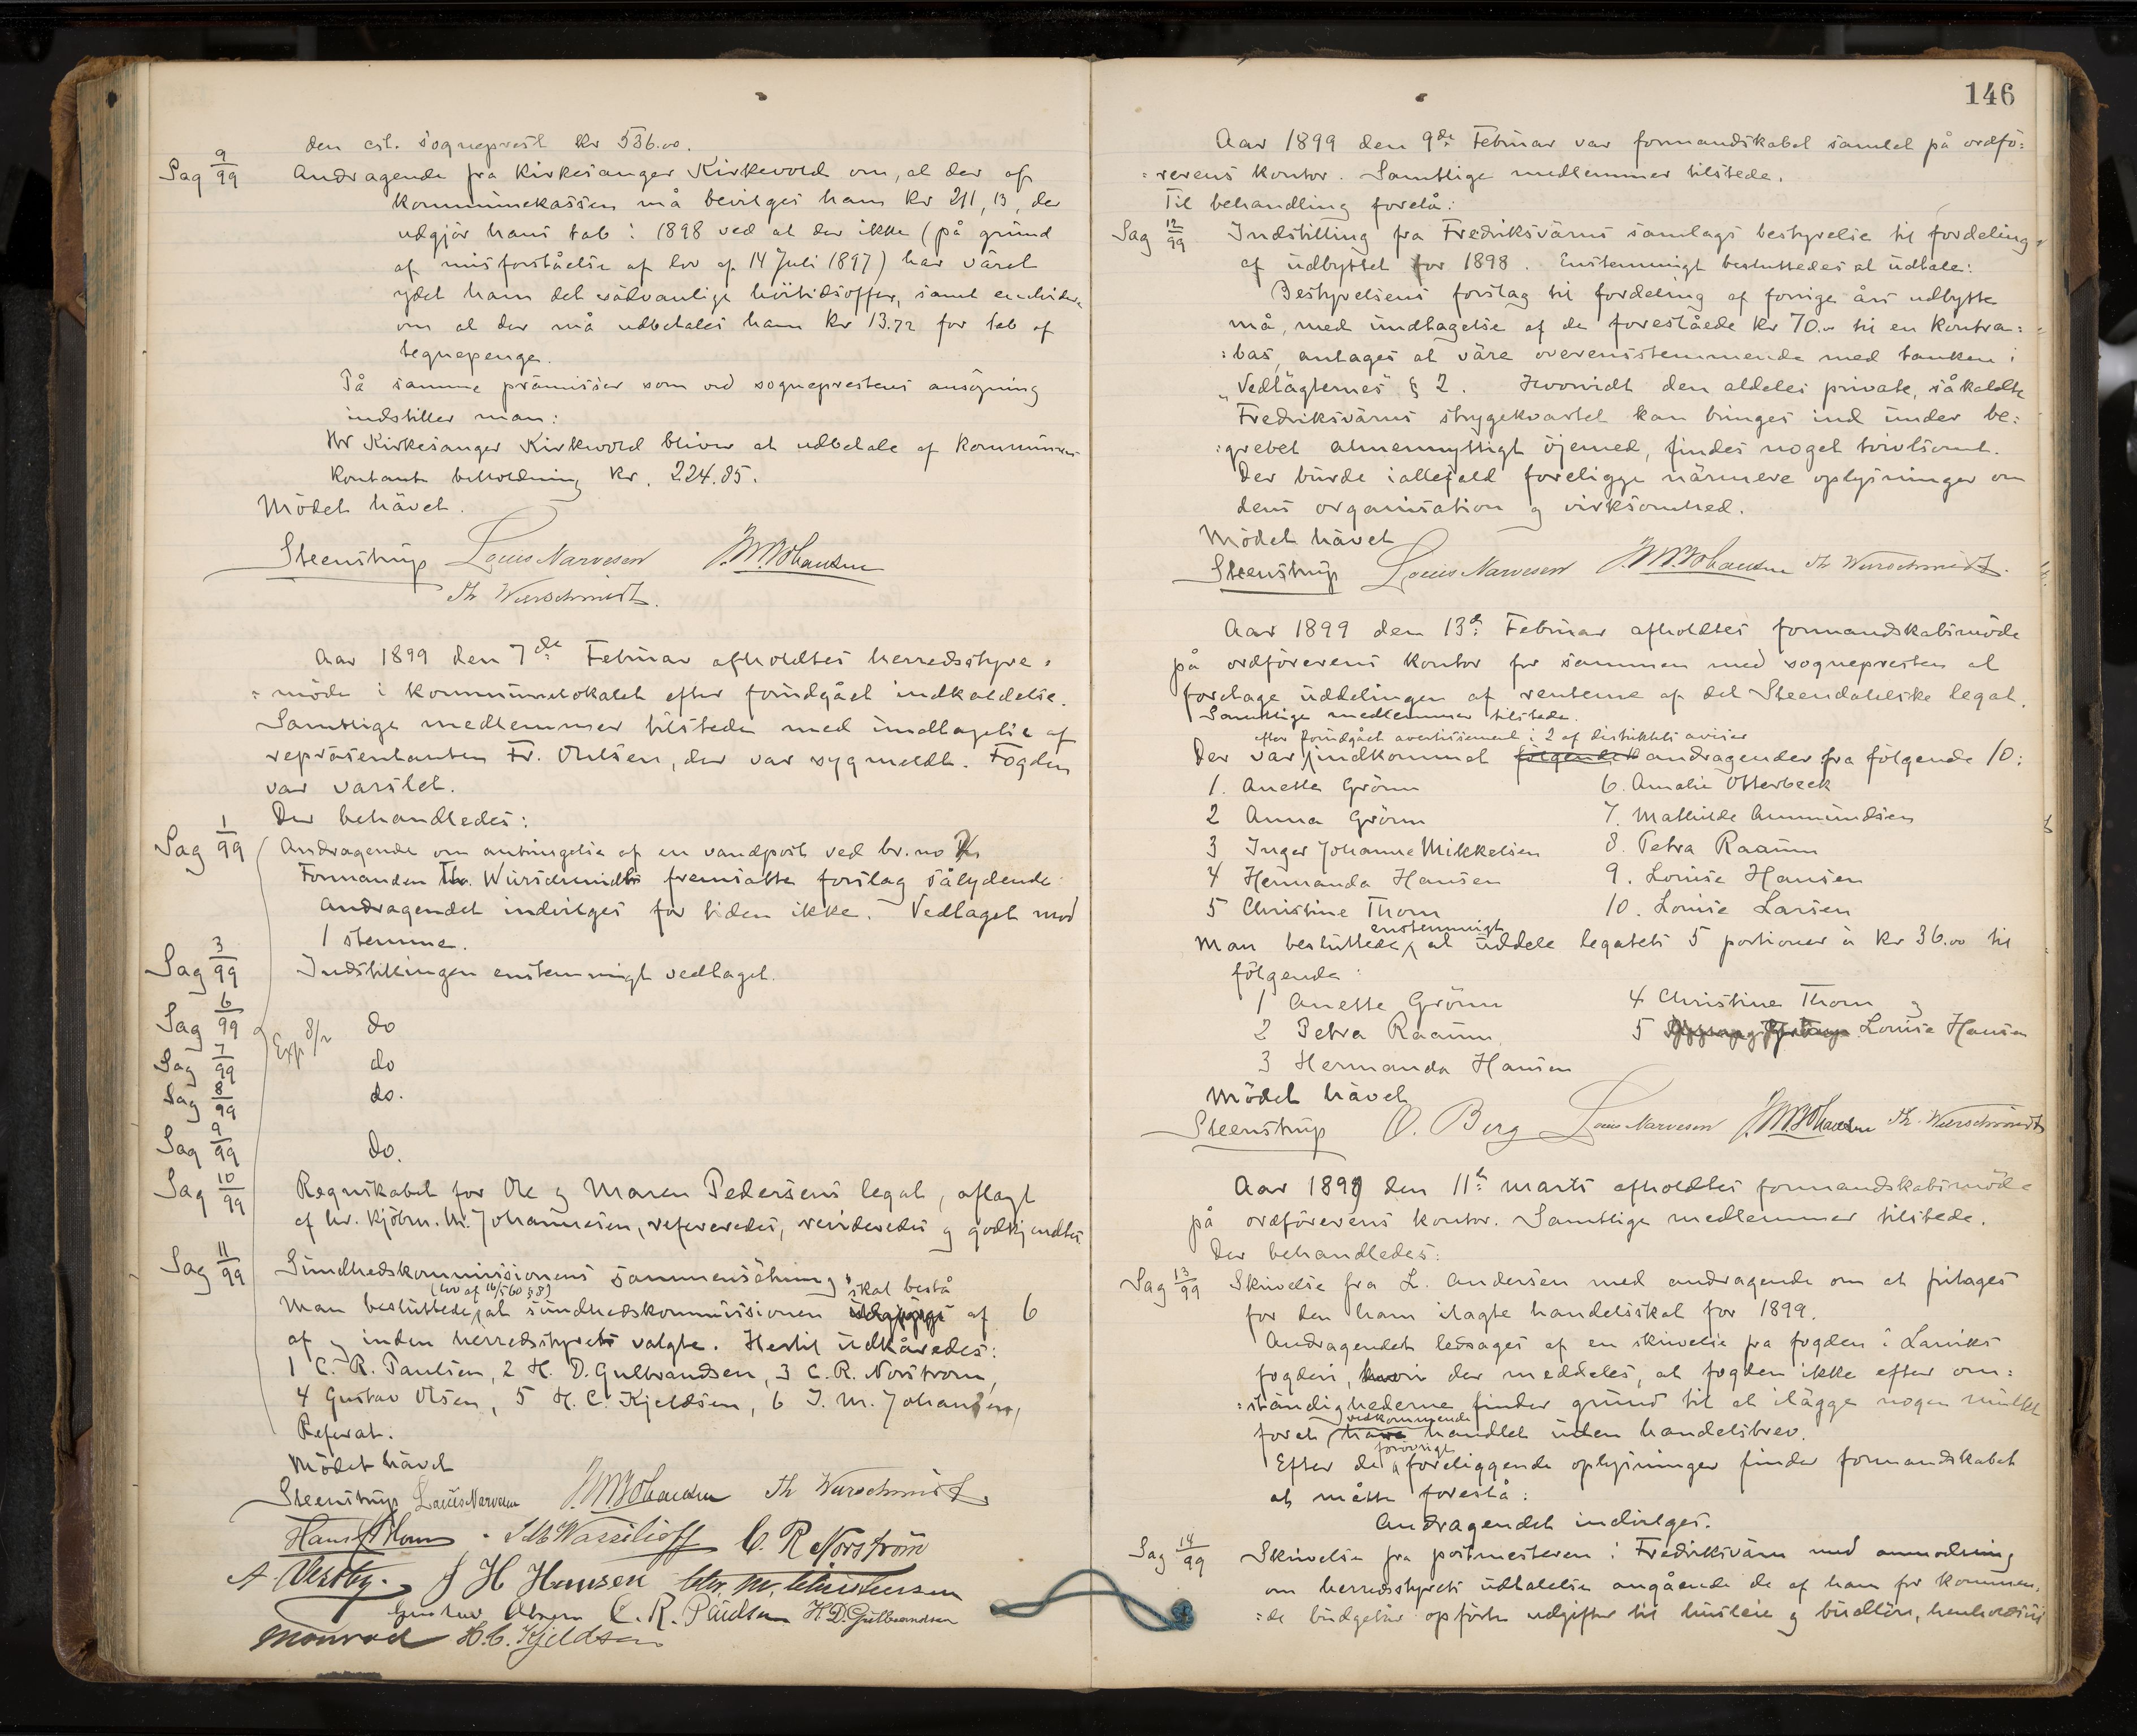 den cst. sogneprest kr 536.00.
Sag 9/99 Andragende fra Kirkesanger Kirkevold om, at der af
kommunekassen må bevilges ham kr 211,13, der
udgjør hans tab i 1898 ved at der ikke (på grund
af misforståelse af lov af 14 Juli 1897) har väret
ydet ham det sädvanlige höitidsoffer, samt endvidere
om at der må udbetales ham kr 13.72 for tab af
tegnepenge.
På samme prämisser som ved sogneprestens ansögning
indstiller man:
Hr Kirkesanger Kirkevold bliver at udbetale af kommunens
kontante beholdning kr. 224.85.
Mödet hävet.
Steenstrup Louis Narvesen J. M. Johansen
Th Wurschmidt.
Aar 1899 den 7de Februar afholdtes herredsstyre=
=möde i kommunelokalet efter forudgået indkaldelse.
Samtlige medlemmer tilstede med undtagelse af
repräsentanten Fr. Ohlsen, der var sygmeldt. Fogden
var varslet.
Der behandledes:
Sag 1/99 Andragende om anbringelse af en vandpost ved br. no
Formanden Th. Wurschmidt fremsatte forslag sålydende
Andragendet indvilges for tiden ikke. Vedtaget mod
1 stemme.
Sag 3/99 Indstillingen enstemmigt vedtaget.
Sag 6/99 do
Exp 8/2
Sag 7/99 do
Sag 8/99 do.
Sag 9/99 do.
Sag 10/99 Regnskabet for Ole g Maren Pedersens legat, aflagt
af hr. kjöbm. M. Johannesen, refereredes, revideredes g godkjendtes
Sag 11/99 Sundhedskommissionens sammensätning.
(lov af 16/5 60 § 8) skal bestå
Man besluttede, at sundhedskommissionen af 6
af g inden herredsstyret valgte. Hertil udkåredes:
1 C. R. Paulsen, 2 H. D. Gulbrandsen, 3 C. R. Norström,
4 Gustav Olsen, 5 H. C. Kjeldsen, 6 J. M. Johansen,
Referat.
Mödet hävet
Steenstrup Louis Narvesen J. M. Johansen Th Wurschmidt.
Hans Thorn Wassilioff C. R Norström
A. Vestby. J H Hansen Chr. M. Christensen
Gustav Olsen C. R. Paulsen H. D. Gulbrandsen
Monrad H. C. Kjeldsen
146
Aar 1899 den 9de Februar var formandskabet samlet på ordfö=
=rerens kontor. Samtlige medlemmer tilstede.
Til behandling forelå:
Sag 12/99 Indstilling fra Fredriksvärns samlags bestyrelse til fordeling
af udbyttet for 1898. Enstemmigt besluttedes at udtale:
Bestyrelsens forslag til fordeling af forrige års udbytte
må, med undtagelse af de foreslåede kr 70.00 til en kontra=
=bas, antages at väre overensstemmende med tanken i
"Vedtägternes" § 2. Hvorvidt den aldeles private, såkaldte
Fredriksvärns strygekvartet kan bringes ind under be=
=grebet almennyttigt öjemed, findes noget tvivlsomt.
Der burde iallefald foreligge närmere oplysninger om
dens organisation g virksomhed.
Mödet hävet
Steenstrup Louis Narvesen J. M. Johansen Th Wurschmidt.
Aar 1899 den 13de Februar afholdtes formandskabsmöde
på ordförerens kontor for sammen med sognepresten at
foretage uddelingen af renterne af det Steendahlske legat.
Samtlige medlemmer tilstede.
efter forudgået avertissement i 2 af distriktets aviser
Der var indkommet fölgende andragender fra fölgende 10:
1. Anette Grönn 6. Amalie Otterbeck
2 Anna Grönn 7. Mathilde Ammundsen
3 Inger Johanne Mikkelsen 8. Petra Raaum
4 Hermanda Hansen 9. Louise Hansen
5 Christine Thorn 10. Louise Larsen
enstemmigt
Man besluttede, at uddele legatets 5 portioner à kr 36.00 til
fölgende:
1 Anette Grönn 4 Christine Thorn g
2 Petra Raaum 5 Louise Hansen
3 Hermanda Hansen
Mödet hävet
Steenstrup O. Berg Louis Narvesen J. M. Johansen Th. Wurschmidt
Aar 1899 den 11te Marts afholdtes formandskabsmöde
på ordförerens kontor. Samtlige medlemmer tilstede.
Der behandledes:
Sag 13/99 Skrivelse fra L. Andersen med andragende om at fritages
for den ham ilagte handelsskat for 1899.
Andragendet ledsages af en skrivelse fra fogden i Larviks
fogderi, hvori der meddeles, at fogden ikke efter om=
=ständighederne finder grund til at ilägge nogen mulkt
vedkommende
for at have handlet uden handelsbrev.
forövrigt
Efter de foreliggende oplysninger finder formandskabet
at måtte foreslå:
Andragendet indvilges.
Sag 14/99 Skrivelse fra postmesteren i Fredriksvärn med anmodning
om herredsstyrets udtalelse angående de af ham for kommen=
=de budgetår opförte udgifter til husleie g budlön, henholdsvis